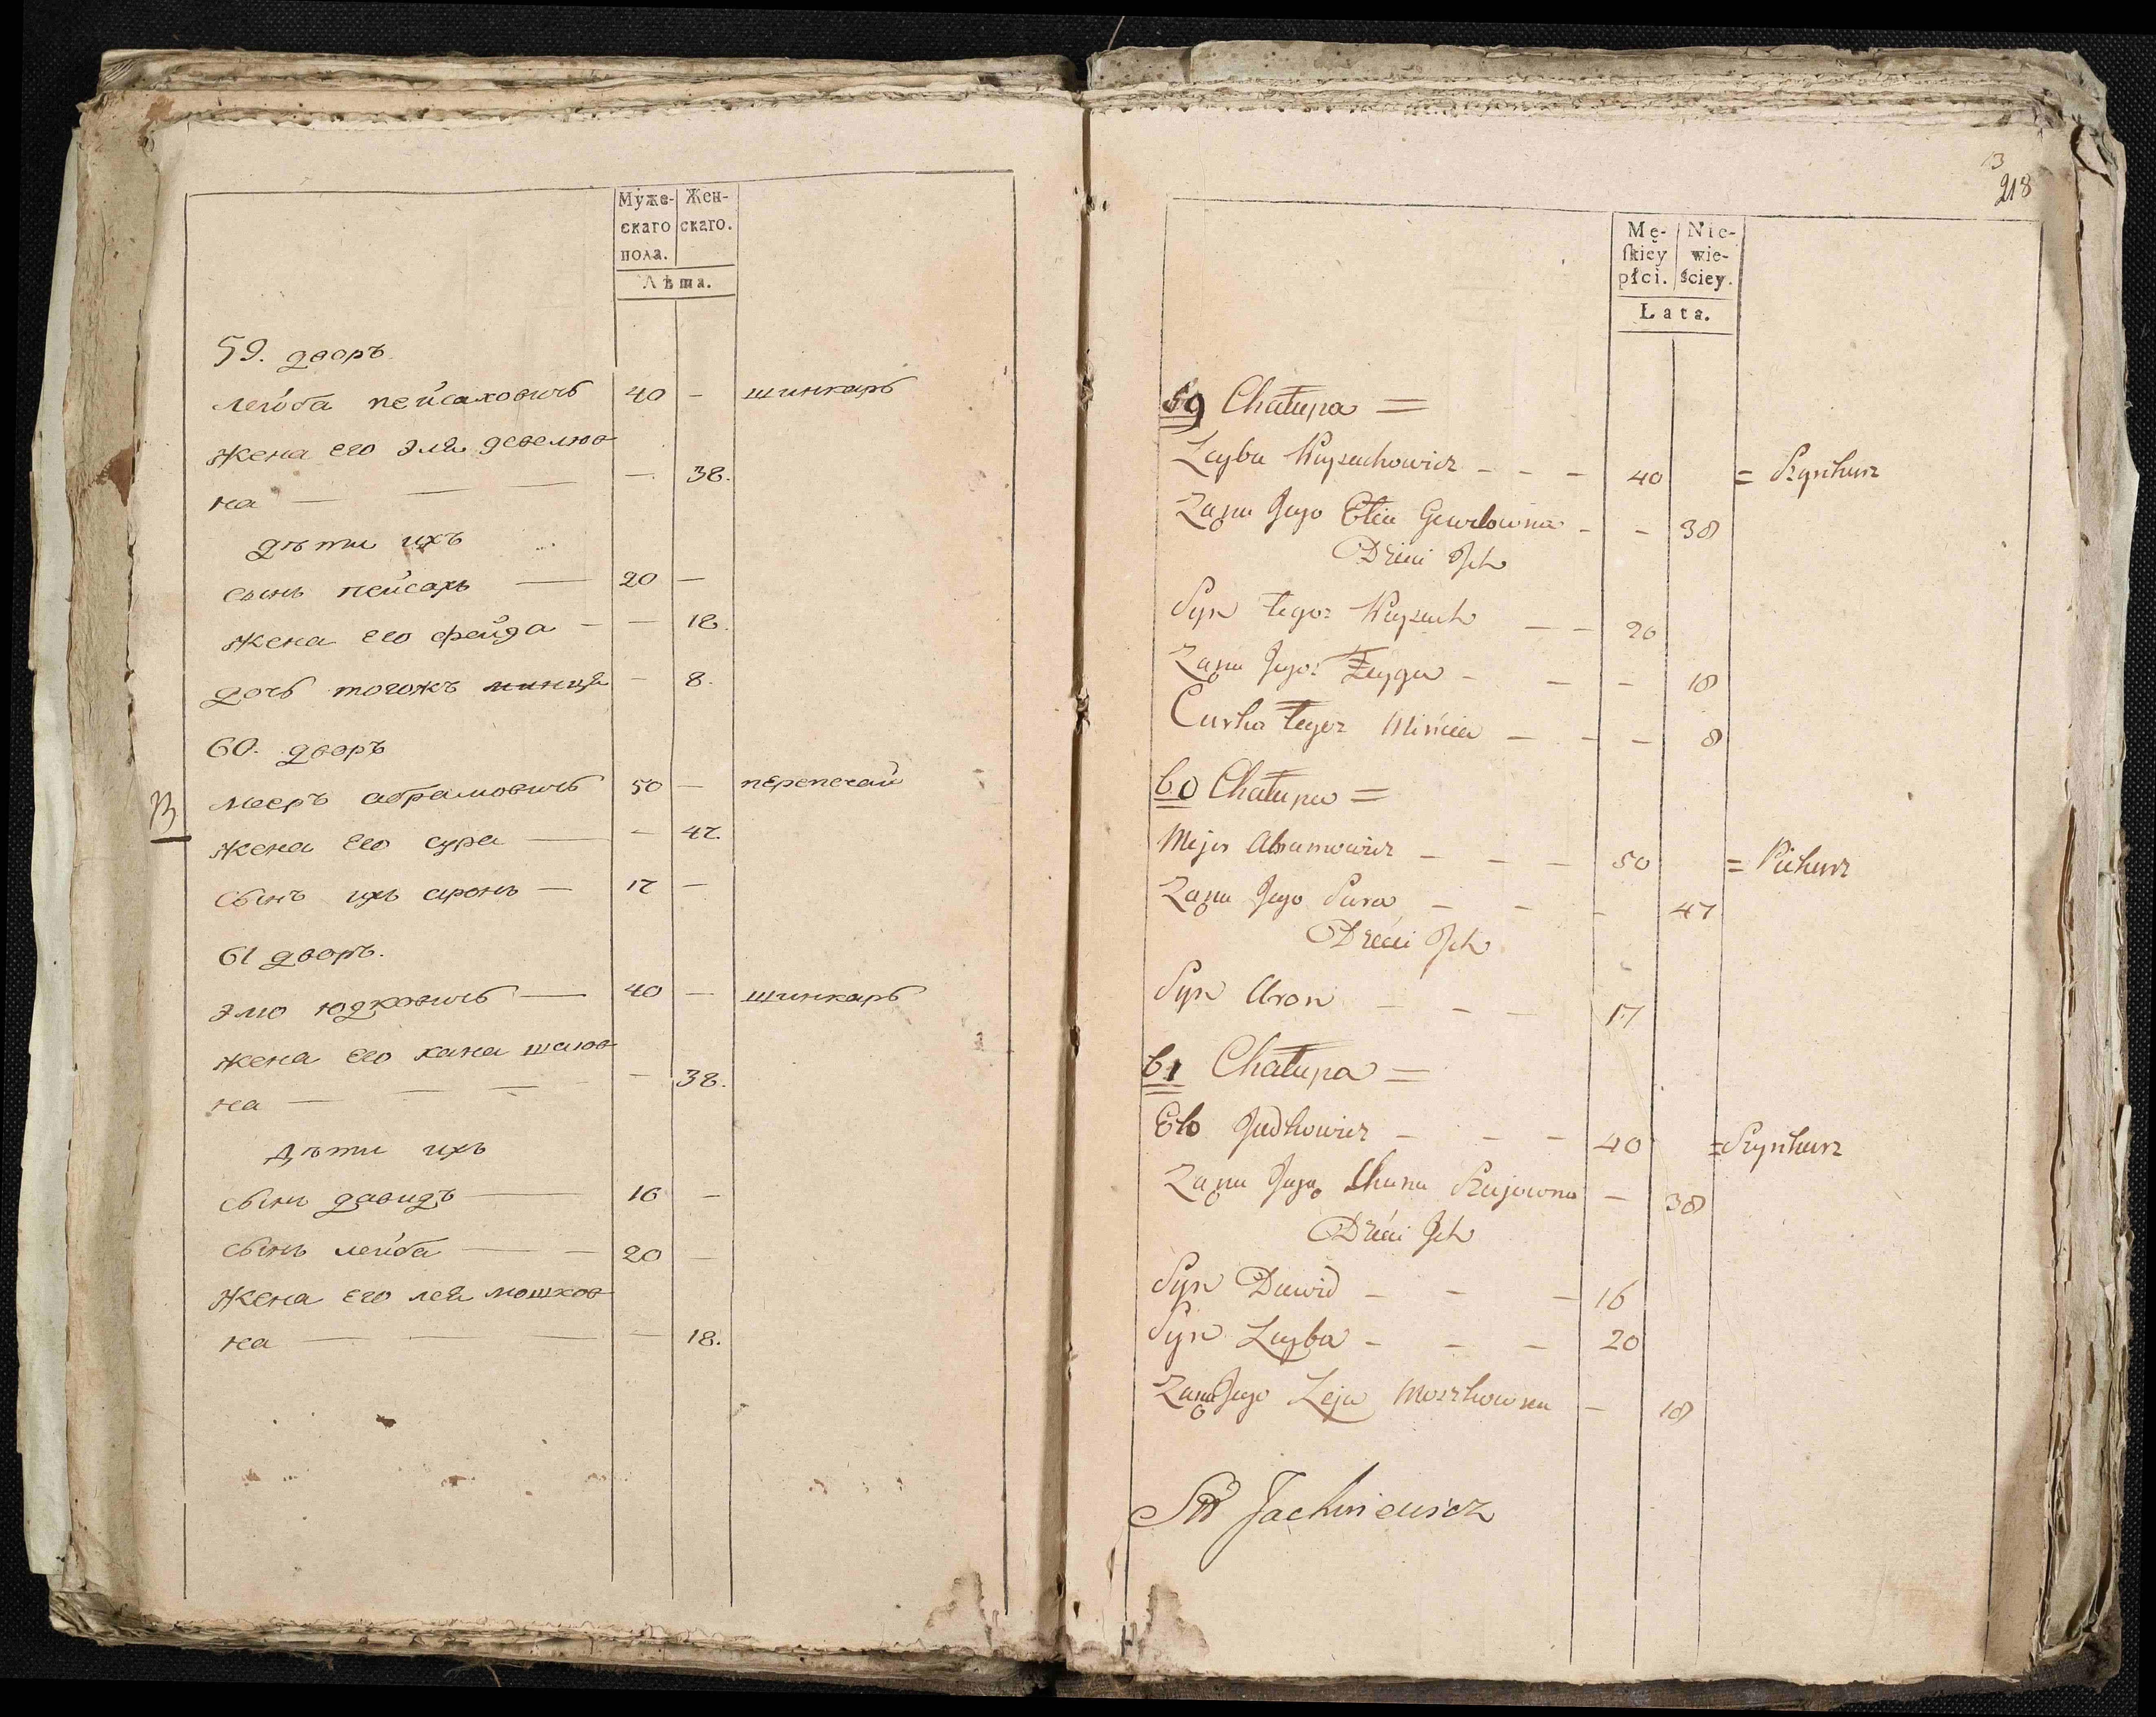 Муже-
скаго
пола.
Жен-
скаго.
Лѣта.
59. дворъ
лейба пейсаховичь 40 – шинкарь
жена его эля девелюв
на — — — – 38.
дѣти ихъ
сынъ пейсахъ — 20 –
жена его фейда – – 18.
дочь тогожъ минця – 8.
60. дворъ
мееръ абрамовичь 50 – перепечай
жена его сура — – 47.
сынъ ихъ аронъ — 17 –
61 дворъ.
эліо юдковичь — 40 – шинкарь
жена его хана шаюв
на — — — – 38.
дѣти ихъ
сынъ давидъ — 16 –
сынъ лейба — – 20 –
жена его лея мошков
на — — — – 18.
13
218
Mę-
ſkiey
płci.
Nie-
wie-
ściey.
Lata.
59 Chałupa =
Leyba Peysachowicz – – – 40 = Szynkarz
Zona Jego Elia Gewelowna – – 38
Dzieci Ich
Syn tegoz Peysach – – 20
Zona Jego Feyga – – – 18
Curka tegoz Mińcia – – – 8
60 Chałupa =
Mejer Abramowicz – – – 50 = Piekarz
Zona Jego Sura – – – 47
Dzieci Ich
Syn Aron – – – 17
61 Chałupa =
Elo Judkowicz – – – 40 = Szynkarz
Zona Jego Chana Szajowna – 38
Dzieci Ich
Syn Dawid – – – 16
Syn Leyba – – – 20
Zona Jego Leja Moszkowna – 18
Jachniewicz